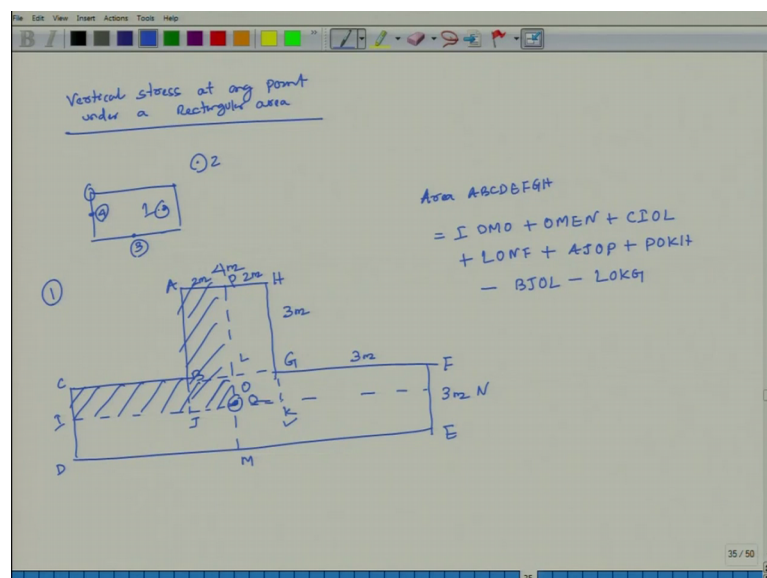 File Edit View Insert Actions Tools Help
B I
Vertical stress at any point
under a Rectangular area
2
4
1
3
1
A 2m 4m P 2m H
3m
C B L G 3m F
O 3m N
I J K
D M E
Area ABCDEFGH
= I OMO + OMEN + CIOL
+ LONF + AJOP + POKH
- BJOL - LOKG
35 / 50